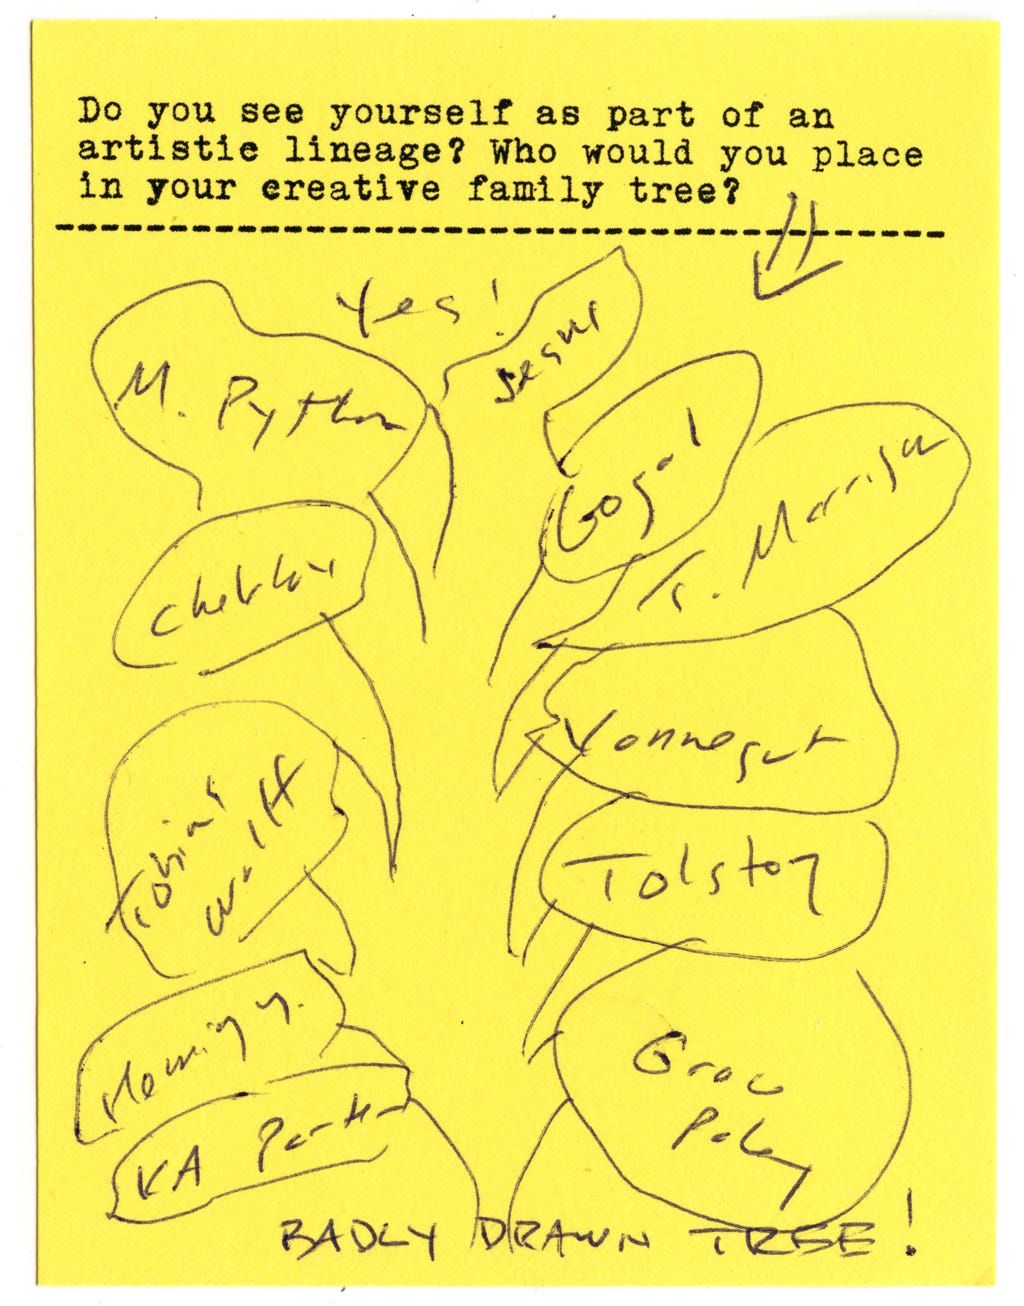 Do you see yourself as part of an
artistic lineage? Who would you place
in your creative family tree?
Yes!
Jesus
M. Python
Gogol
T. Morrison
Chekhov
Vonnegut
Tobias
Wolff
Tolstoy
Hemingway.
Grace
Paley
KA Porter
BADLY DRAWN TREE!